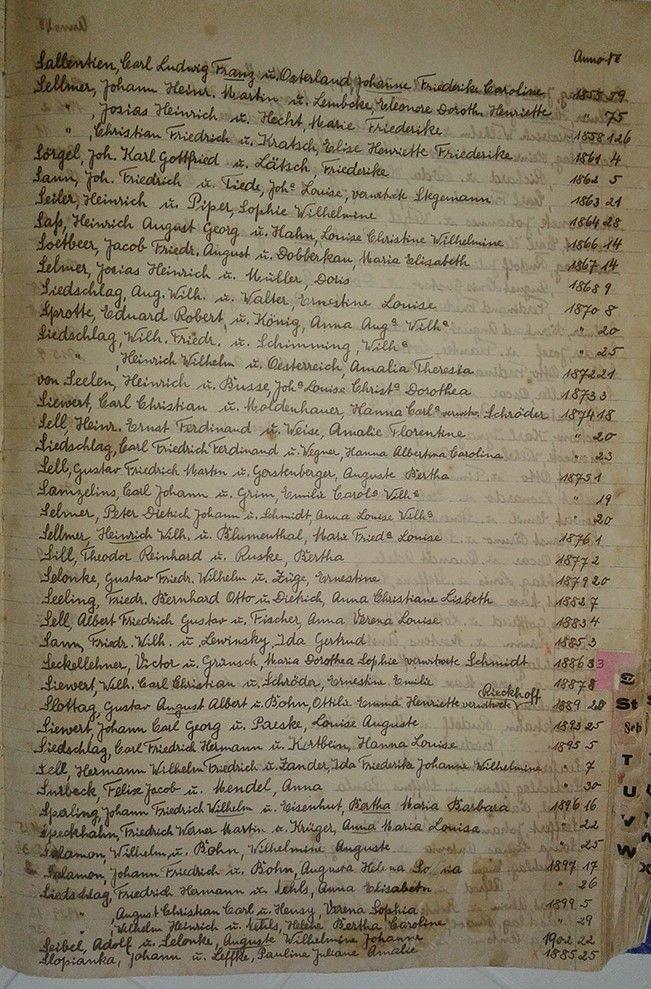 Anno №
Sallentien, Carl Ludwig Franz u. Osterland Johanne Friederike Caroline 1855 59
Sellmer, Johann Heinr. Martin u. Lembcke, Eleonore Doroth. Henriette " 75
" , Josias Heinrich u. Hecht, Marie Friederike 1858 126
" Christian Friedrich u. Kratsch, Elise Henriette Friederike
Sörgel, Joh. Karl Gottfried u. Lätsch, Friederike 1861 4
Sann, Joh. Friedrich u. Tiede, Joha Louise, verwitwete Stegemann 1862 5
Seiler, Heinrich u. Piper, Sophie Wilhelmine 1863 21
Saß, Heinrich August Georg u. Hahn, Louise Christine Wilhelmine 1864 28
Soltbeer, Jacob Friedr. August u. Dobberkau, Maria Elisabeth 1866 14
Selmer, Josias Heinrich u. Müller, Doris 1867 14
Siedschlag, Aug. Wilh. u. Walter, Ernestine Louise 1868 9
Sprotte, Eduard Robert, u. König, Anna Auga Wilha 1870 8
Siedschlag, Wilh. Friedr. u. Schimming, Wilha " 20
" , Heinrich Wilhelm u. Oesterreich, Amalia Theresia " 25
von Seelen, Heinrich u. Busse, Joha Louise Christa Dorothea 1872 21
Siewert, Carl Christian u. Moldenhauer, Hanna Carla verwitw. Schröder 1873 3
Sell, Heinr. Ernst Ferdinand u. Weise, Amalie Florentine 1874 18
Siedschlag, Carl Friedrich Ferdinand u. Wegner, Hanna Albertina Carolina " 20
Sell, Gustav Friedrich Martin u. Gerstenberger, Auguste Bertha " 23
Samzelius, Carl Johann u. Grim, Emilie Carola Wilha 1875 1
Selmer, Peter Dietrich Johann u. Schmidt, Anna Louise Wilha " 19
Sellmer, Heinrich Wilh. u. Blumenthal, Marie Frieda Louise " 20
Sill, Theodor Reinhard u. Ruske, Bertha 1876 1
Selonke, Gustav Friedr. Wilhelm u. Züge, Ernestine 1877 2
Seeling, Friedr. Bernhard Otto u. Dietrich, Anna Christiane Lisbeth 1879 20
Sell, Albert Friedrich Gustav u. Fischer, Anna Verena Louise 1882 7
Sann, Friedr. Wilh. u. Lewinsky, Ida Gertrud 1883 4
Seckellehner, Victor u. Grünsch, Maria Dorothea Sophie verwitwete Schmidt 1885 3
Siewert, Wilh. Carl Christian u. Schröder, Ernestine Emilie 1886 33
Slottag, Gustav August Albert u. Bohn, Ottilie Emma Henriette verwitwete Rieckhoff 1887 8
Siewert, Johann Carl Georg u. Paeske, Louise Auguste 1889 28
Siedschlag, Carl Friedrich Hermann u. Kertbein, Hanna Louise 1893 25
Sell, Hermann Wilhelm Friedrich u. Zander, Ida Friederike Johanne Wilhelmine 1895 5
Surbeck Felix Jacob u. Mendel, Anna " 7
Sperling, Johann Friedrich Wilhelm u. Eisenhut, Bertha Maria Barbara " 30
Speckhahn, Friedrich Werner Martin u. Krüger, Anna Maria Louisa 1896 16
Salamon, Wilhelm, u. Bohn, Wilhelmine Auguste " 22
Salamon, Johann Friedrich u. Bohn, Augusta Helena " 25
Siedschlag, Friedrich Hermann u. Nehls, Anna Elisabeth 1897 17
" August Christian Carl u. Hensy, Verena Sophia " 26
" , Wilhelm Heinrich u. Nehls, Helene Bertha Caroline 1899 5
" 29
Seibel, Adolf u. Selonke, Auguste Wilhelmine Johanne 1902 22
Slopianka, Johann u. Leffke, Pauline Juliane Amalie x 1885 25
S
St
Sch
T
U
V
W